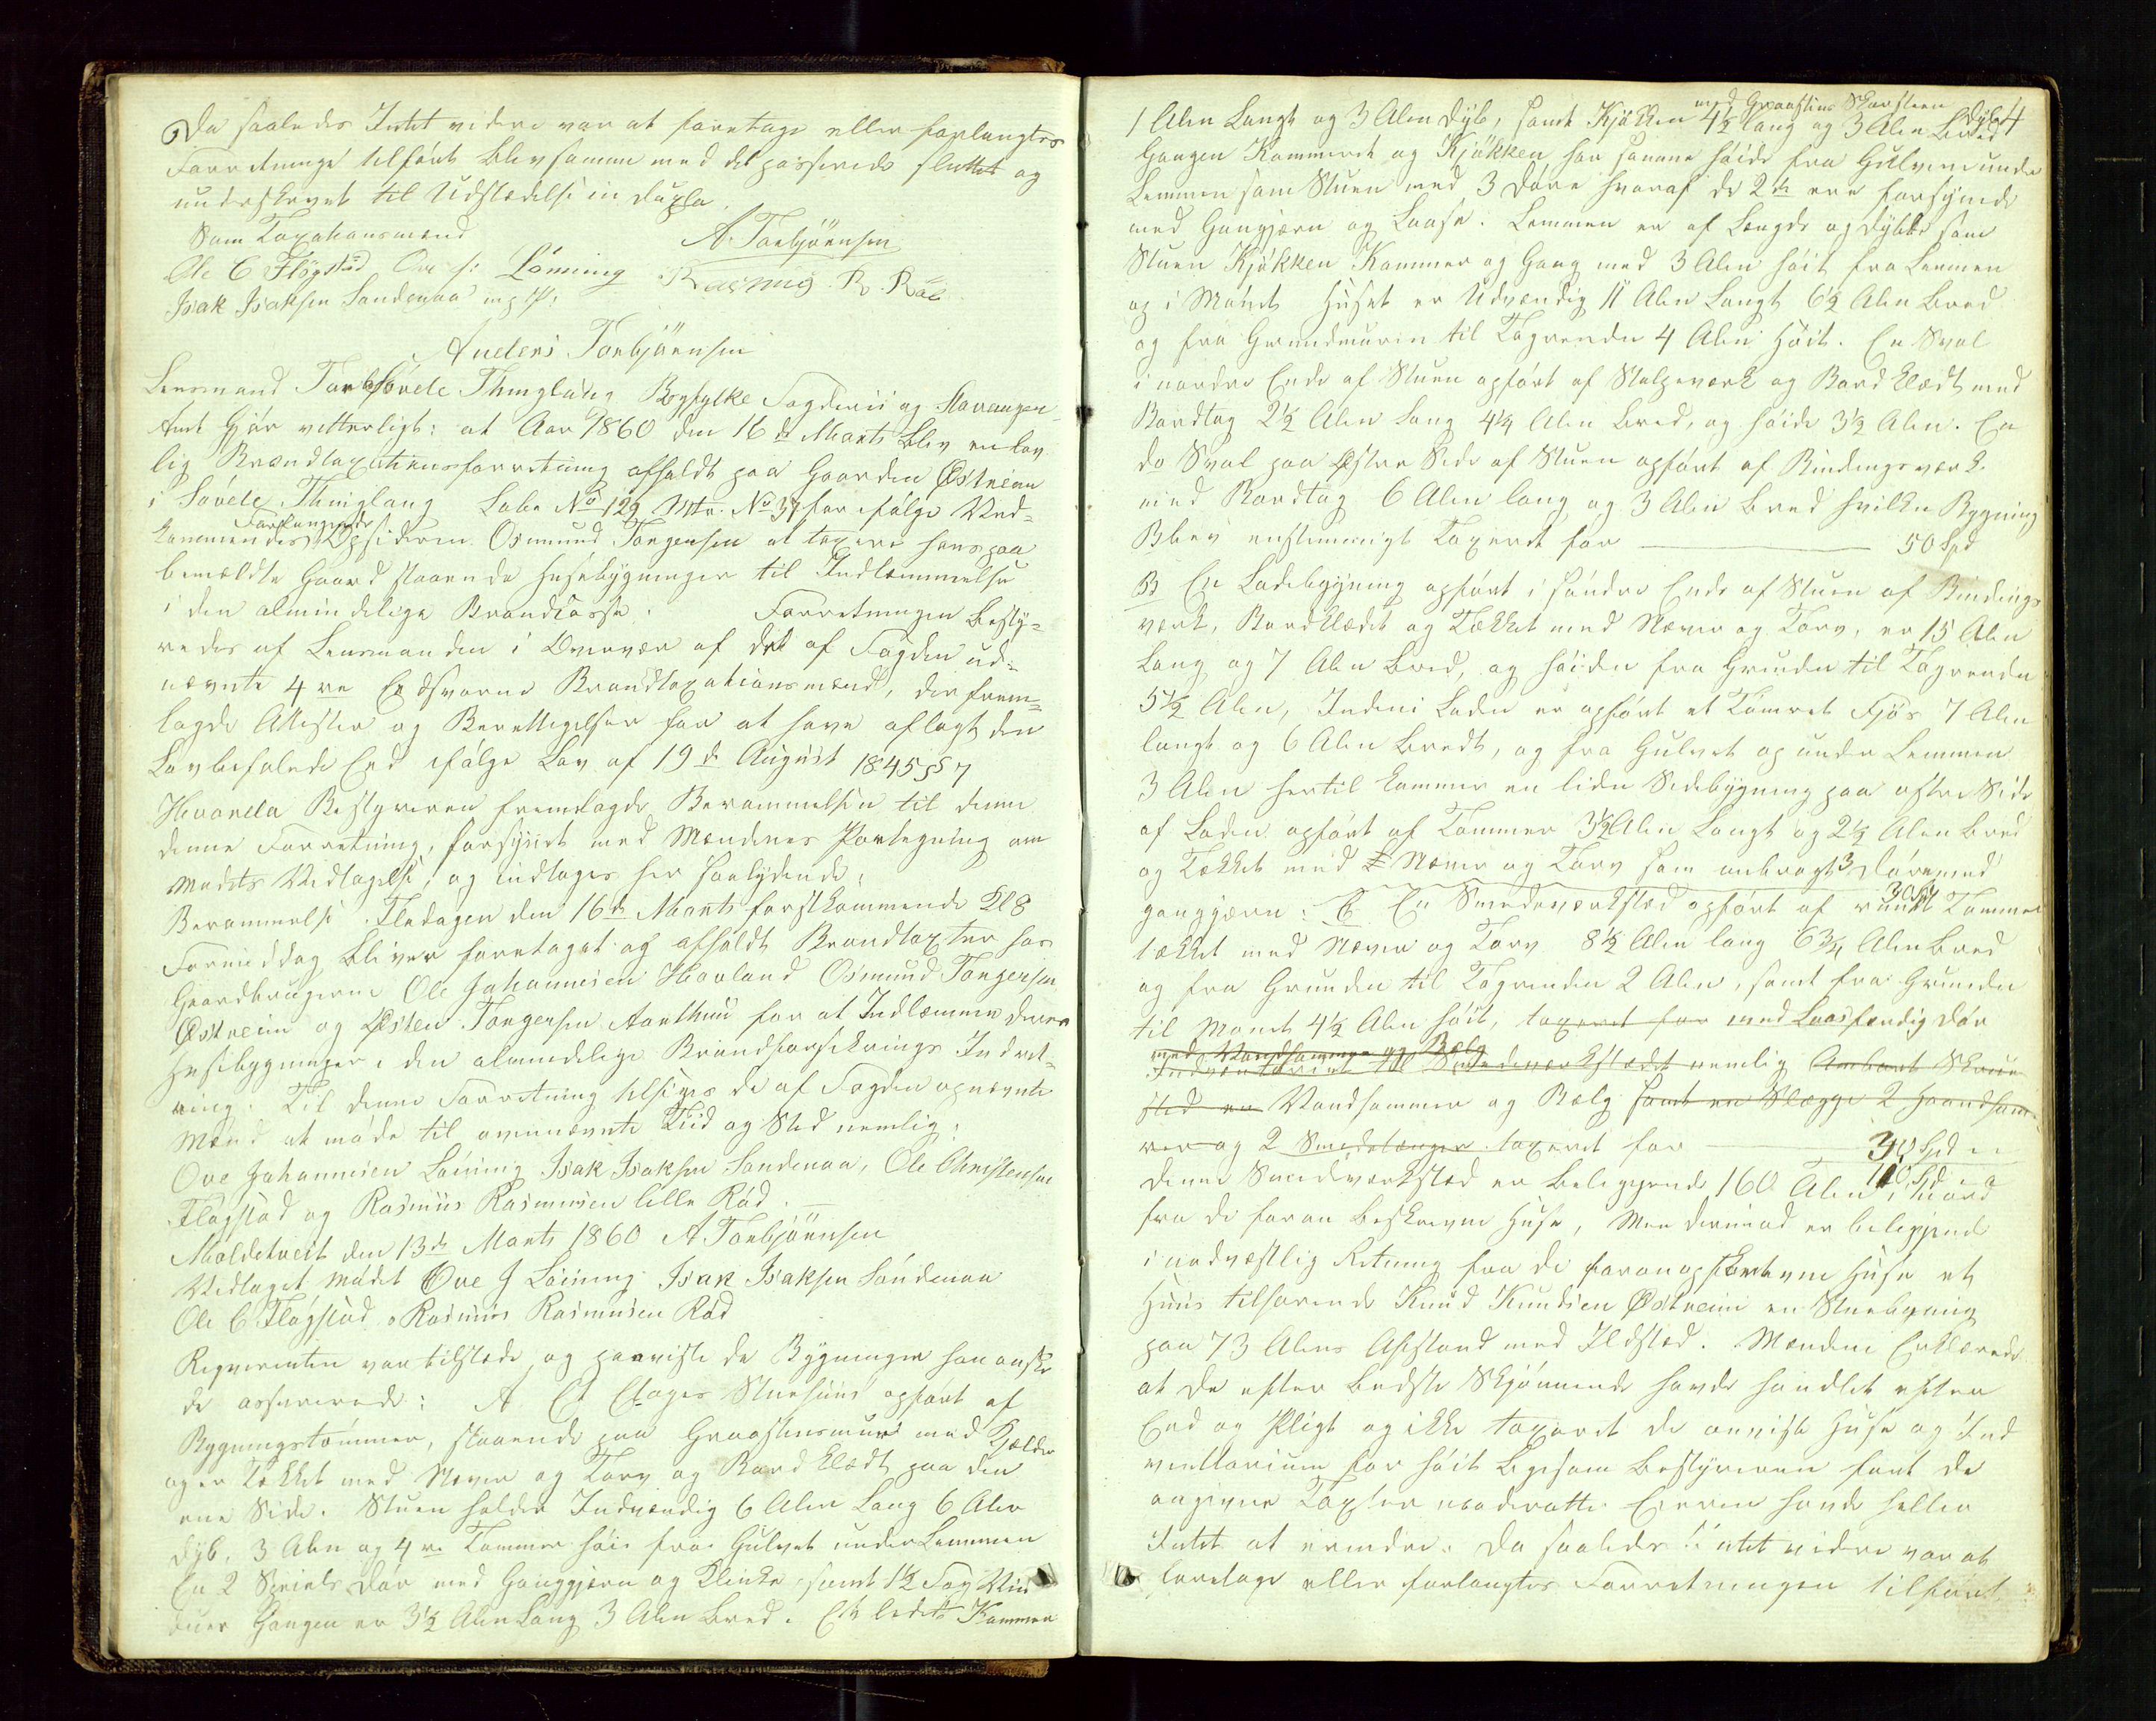 Da saaledes Intet videre var at foretage eller forlangtes
Forretninge tilført Blev samme med det passerede sluttet og
underskrevet til Udstædelse in dupla.
Som Taxationsmænd
A. Torbjörnsen
Ole C Flögstad Ove J: Lönning Rasmus R. Röd
Isak Isaksen Sandenaa m. p. P:
Anders Torbjörnsen
Lensmand for Søvde Thinglaug Ryfylke Fogderii og Stavanger
Amt Gjør vitterligt: at Aar 1860 den 16de Marts Blev en lov-
lig Brandtaxationsforretning afholdt paa Gaarden Østreim
i Søvde Thinglaug Løbe No 129 Mtr. No 37 for ifølge Ved-
Forlangende
kommendes Opsideren Osmund Torgersen at taxere hans paa
bemældte Gaard staaende Husebygninger til Indlemmelse
i den almindelige Brandcasse. Forretningen Besty-
redes af Lensmanden i Overvær af det af Fogden ud-
nævnte 4re Eedsvorne Brandtaxationsmænd, der frem-
lagde Attester og Berettigelser for at have aflagt den
Lovbefalede Eed ifølge Lov af 19de August 1845 § 7
Hvorefter Bestyreren fremlagde Berammelsen til denne
denne Forretning, forsynet med Mændenes Paategning om
Mødets Vedtagelse, og indtages her saalydende:
Berammelse. Fredagen den 16de Marts førstkommende Kl 8
Formiddag bliver foretaget og afholdt Brandtaxter hos
Gaardbrugerne Ole Johannesen Hovland Osmund Torgersen
Østreim og Østen Torgersen Aarthun for at Indlemme deres
Husebygninger i den almindelige Brandforsikrings Indret-
ning. Til denne Forretning tilsiges de af Fogden opnævnte
Mænd at møde til ovennævnte Tiid og Sted nemlig:
Ove Johannesen Lönning Isak Isaksen Sandenaa, Ole Christensen
Flögstad og Rasmus Rasmusen lille Röd. —
Moldetveit den 13de Marts 1860 A Torbjörnsen
Vedtaget mødet Ove J Lönning Isak Isaksen Sandenaa
Ole C. Flögstad, Rasmus Rasmusen Röd
Reqvirenten var tilstæde og paaviste de Bygninger han ønske-
de assurerede: A. Et Etages Stuehuus opført af
Bygningstømmer, staaende paa Graastensmuur med Kjelder
og er Tækket med Næver og Torv og Bord klædt paa den
ene Side. Stuen holder Indvændig 6 Alen Lang 6 Alen
dyb, 3 Alen og 4re Tommer høi fra Gulvet under Lemmen
En 2 Speils Dør med Ganggjern og Klinke samt 1½ Fag Vin
duer Gangen er 3½ Alen Lang 3 Alen Bred. Et lidet Kammer
1 Alen Langt og 3 Alen dyb, samt Kjökken 4½ lang og 3 Alen Bred
med Graastens Skorsteen dyb 4
Gangen Kammeret og Kjökken har samme høide fra Gulvene under
Lemmen som Stuen med 3 Døre hvoraf de 2de ere forsynede
med Gangjern og Laase. Lemmen er af Længde og dybde som
Stuen Kjökken Kammer og Gang med 3 Alen høit fra Lemmen
og i Mønet Huset er Udvændig 11 Alen Langt 6½ Alen Bred
og fra Grundmuren til Tagrenden 4 Alen Høit. En Sval
i nordre Ende af Stuen opført af Stolpeværk og Bord klædt med
Bordtag 2½ Alen lang 4¼ Alen bred, og høide 3½ Alen. En
do Sval paa Østre Side af Stuen opført af Bindingsværk
med Bordtag 6 Alen lang og 3 Alen Bred hvilken Bygning
Blev enstemmigt Taxeret for — 50 Spd
B En Ladebygning opført i søndre Ende af Stuen af Bindings
værk, Bordklædet og Tækket med Næver og Torv, er 15 Alen
Lang og 7 Alen Bred, og høiden fra Grunden til Tagrenden
5½ Alen, Inden i Laden er opført et Tømret Fjøs 7 Alen
langt og 6 Alen bredt, og fra Gulvet op under Lemmen
3 Alen hertil kommer en liden Sidebygning paa østre Side
af Laden opført af Tømmer 3½ Alen Langt og 2½ Alen Bred
og Tækket med Næver og Torv som anbragt 3 Døre med
ganggjern: C En Smedeværkstæd opført af rundt Tømmer
30 Sp
tækket med Næver og Torv 8½ Alen lang 6¾ Alen Bred
og fra Grunden til Tagrenden 2 Alen, samt fra Grunden
til Mønet 4½ Alen høit, taxeret for med Laasfærdig Dør
med Vandhammer og Bælg
Indventariet til Smedeværkstædet nemlig Ambolt Skrue
sted en Vandhammer og Bælg samt en Slægge 2 Haandham-
rer og 2 Smedetænger taxeret for — 30 Spd
10 Spd
Denne Smedeværkstæd er Beliggende 160 Alen i Nord
fra de foran beskrevne Huse, Men derimod er beliggende
i nordvæstlig Retning fra de foranopskrevne Huse et
Huus tilhørende Knud Knudsen Østreim en Stuebygning
paa 73 Alens Afstand med Ildsted. Mændene Erklærede
at de efter bedste Skjønnende havde handlet efter
Eed og Pligt og ikke taxeret de anviste Huse og Ind
venttarium for høit ligesom Bestyreren fant de
angivne Taxter moderatte. Eieren havde heller
Intet at erindre. Da saaledes Intet videre var at
foretage eller forlangtes Forretningen tilført